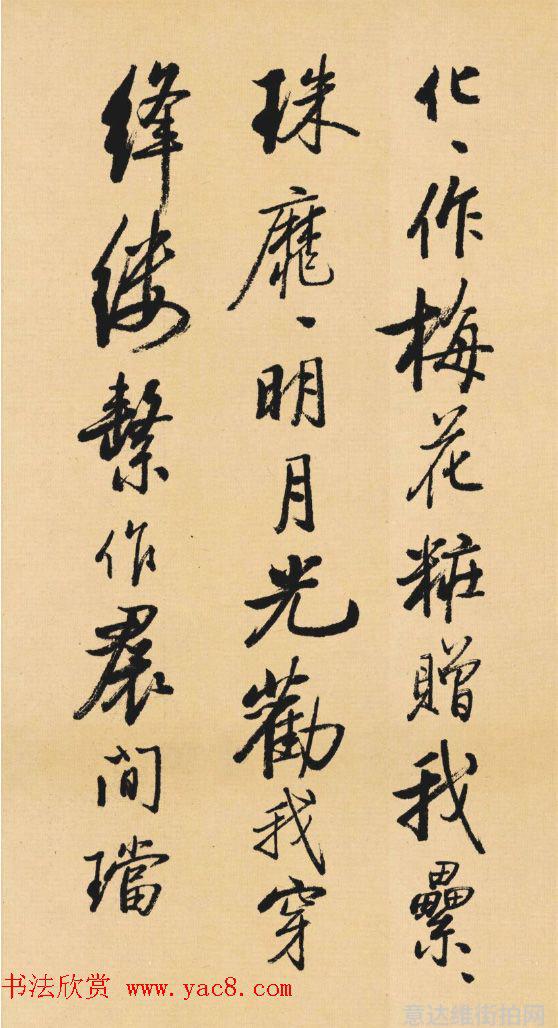 化、作梅花粧贈我纍、
珠靡、明月光勸我穿
絳縷繫作裠間璫
书法欣赏 www.yac8.com
意达维街拍网